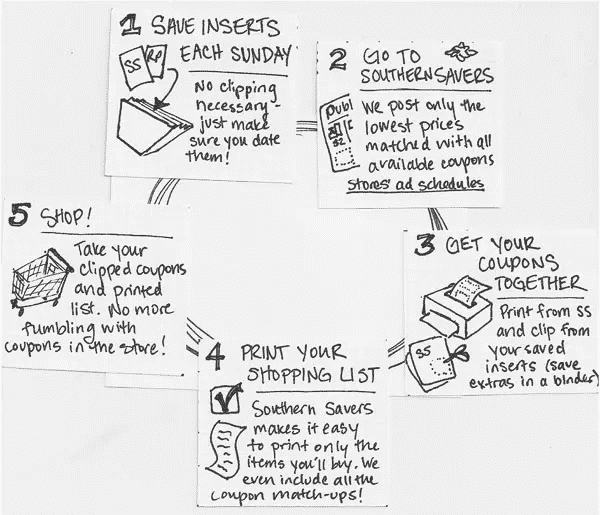 1 SAVE INSERTS
EACH SUNDAY
SS RP
No clipping
necessary -
just make
sure you date
them!
2 GO TO
SOUTHERNSAVERS
Publ
$2
We post only the
lowest prices
matched with all
available coupons
stores' ad schedules
3 GET YOUR
COUPONS
TOGETHER
SS
Print from SS
and clip from
your saved
inserts (save
extras in a binder)
4 PRINT YOUR
SHOPPING LIST
Southern Savers
makes it easy
to print only the
items you'll buy. We
even include all the
coupon match-ups!
5 SHOP!
Take your
clipped coupons
and printed
list. No more
fumbling with
coupons in the store!